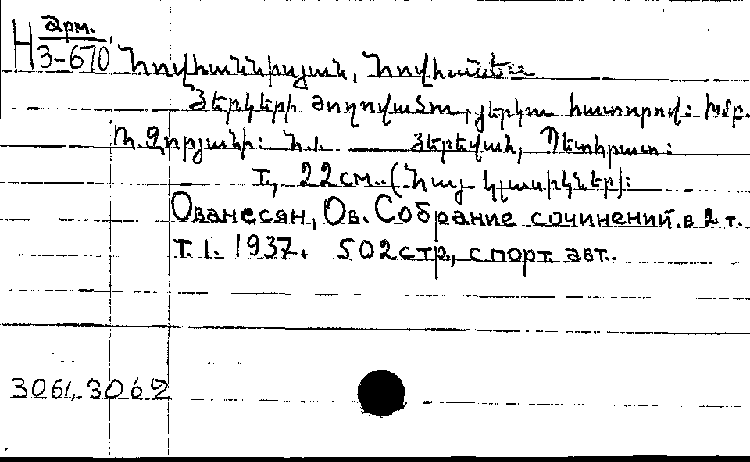 Н Арм.
3-670
Հովհաննիսյան, Հովհաննես
Յերկերի ժողովածու, յերկու հատորով: Խմբ.
Ն. Զորյանի: Հ.1. — Յերեվան, Պետհրատ:
т., 22см. (Հայ կլասիկներ):
Ованесян, Ов. Собрание сочинений. в 2 т.
Т. 1. 1937. 502стр., с порт. авт.
3061, 3062